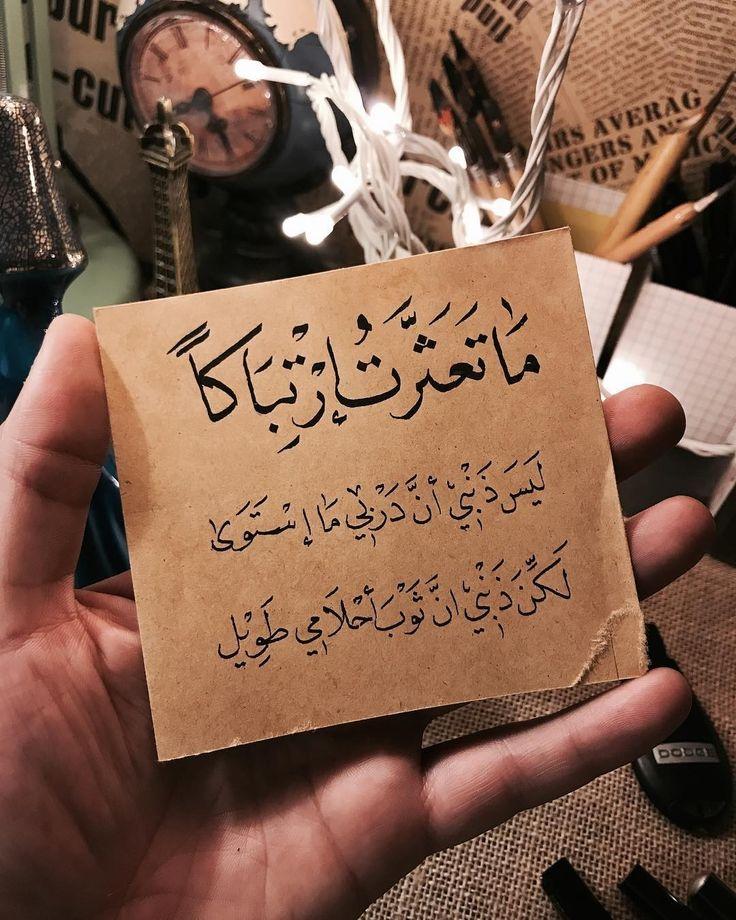 our
-cut
RS AVERAG
NGERS AN
OF MAGIC
مَا تَعَثَّرَتُ إرْتِبَاكاً
لَيَسَ ذَنْبْي أنَّ دَرْبْي مَا إسْتَوَى
لَكِّنَ ذَنْبْي انَّ ثَوْبَ أحْلَامِي طَوِيْل
DODGE